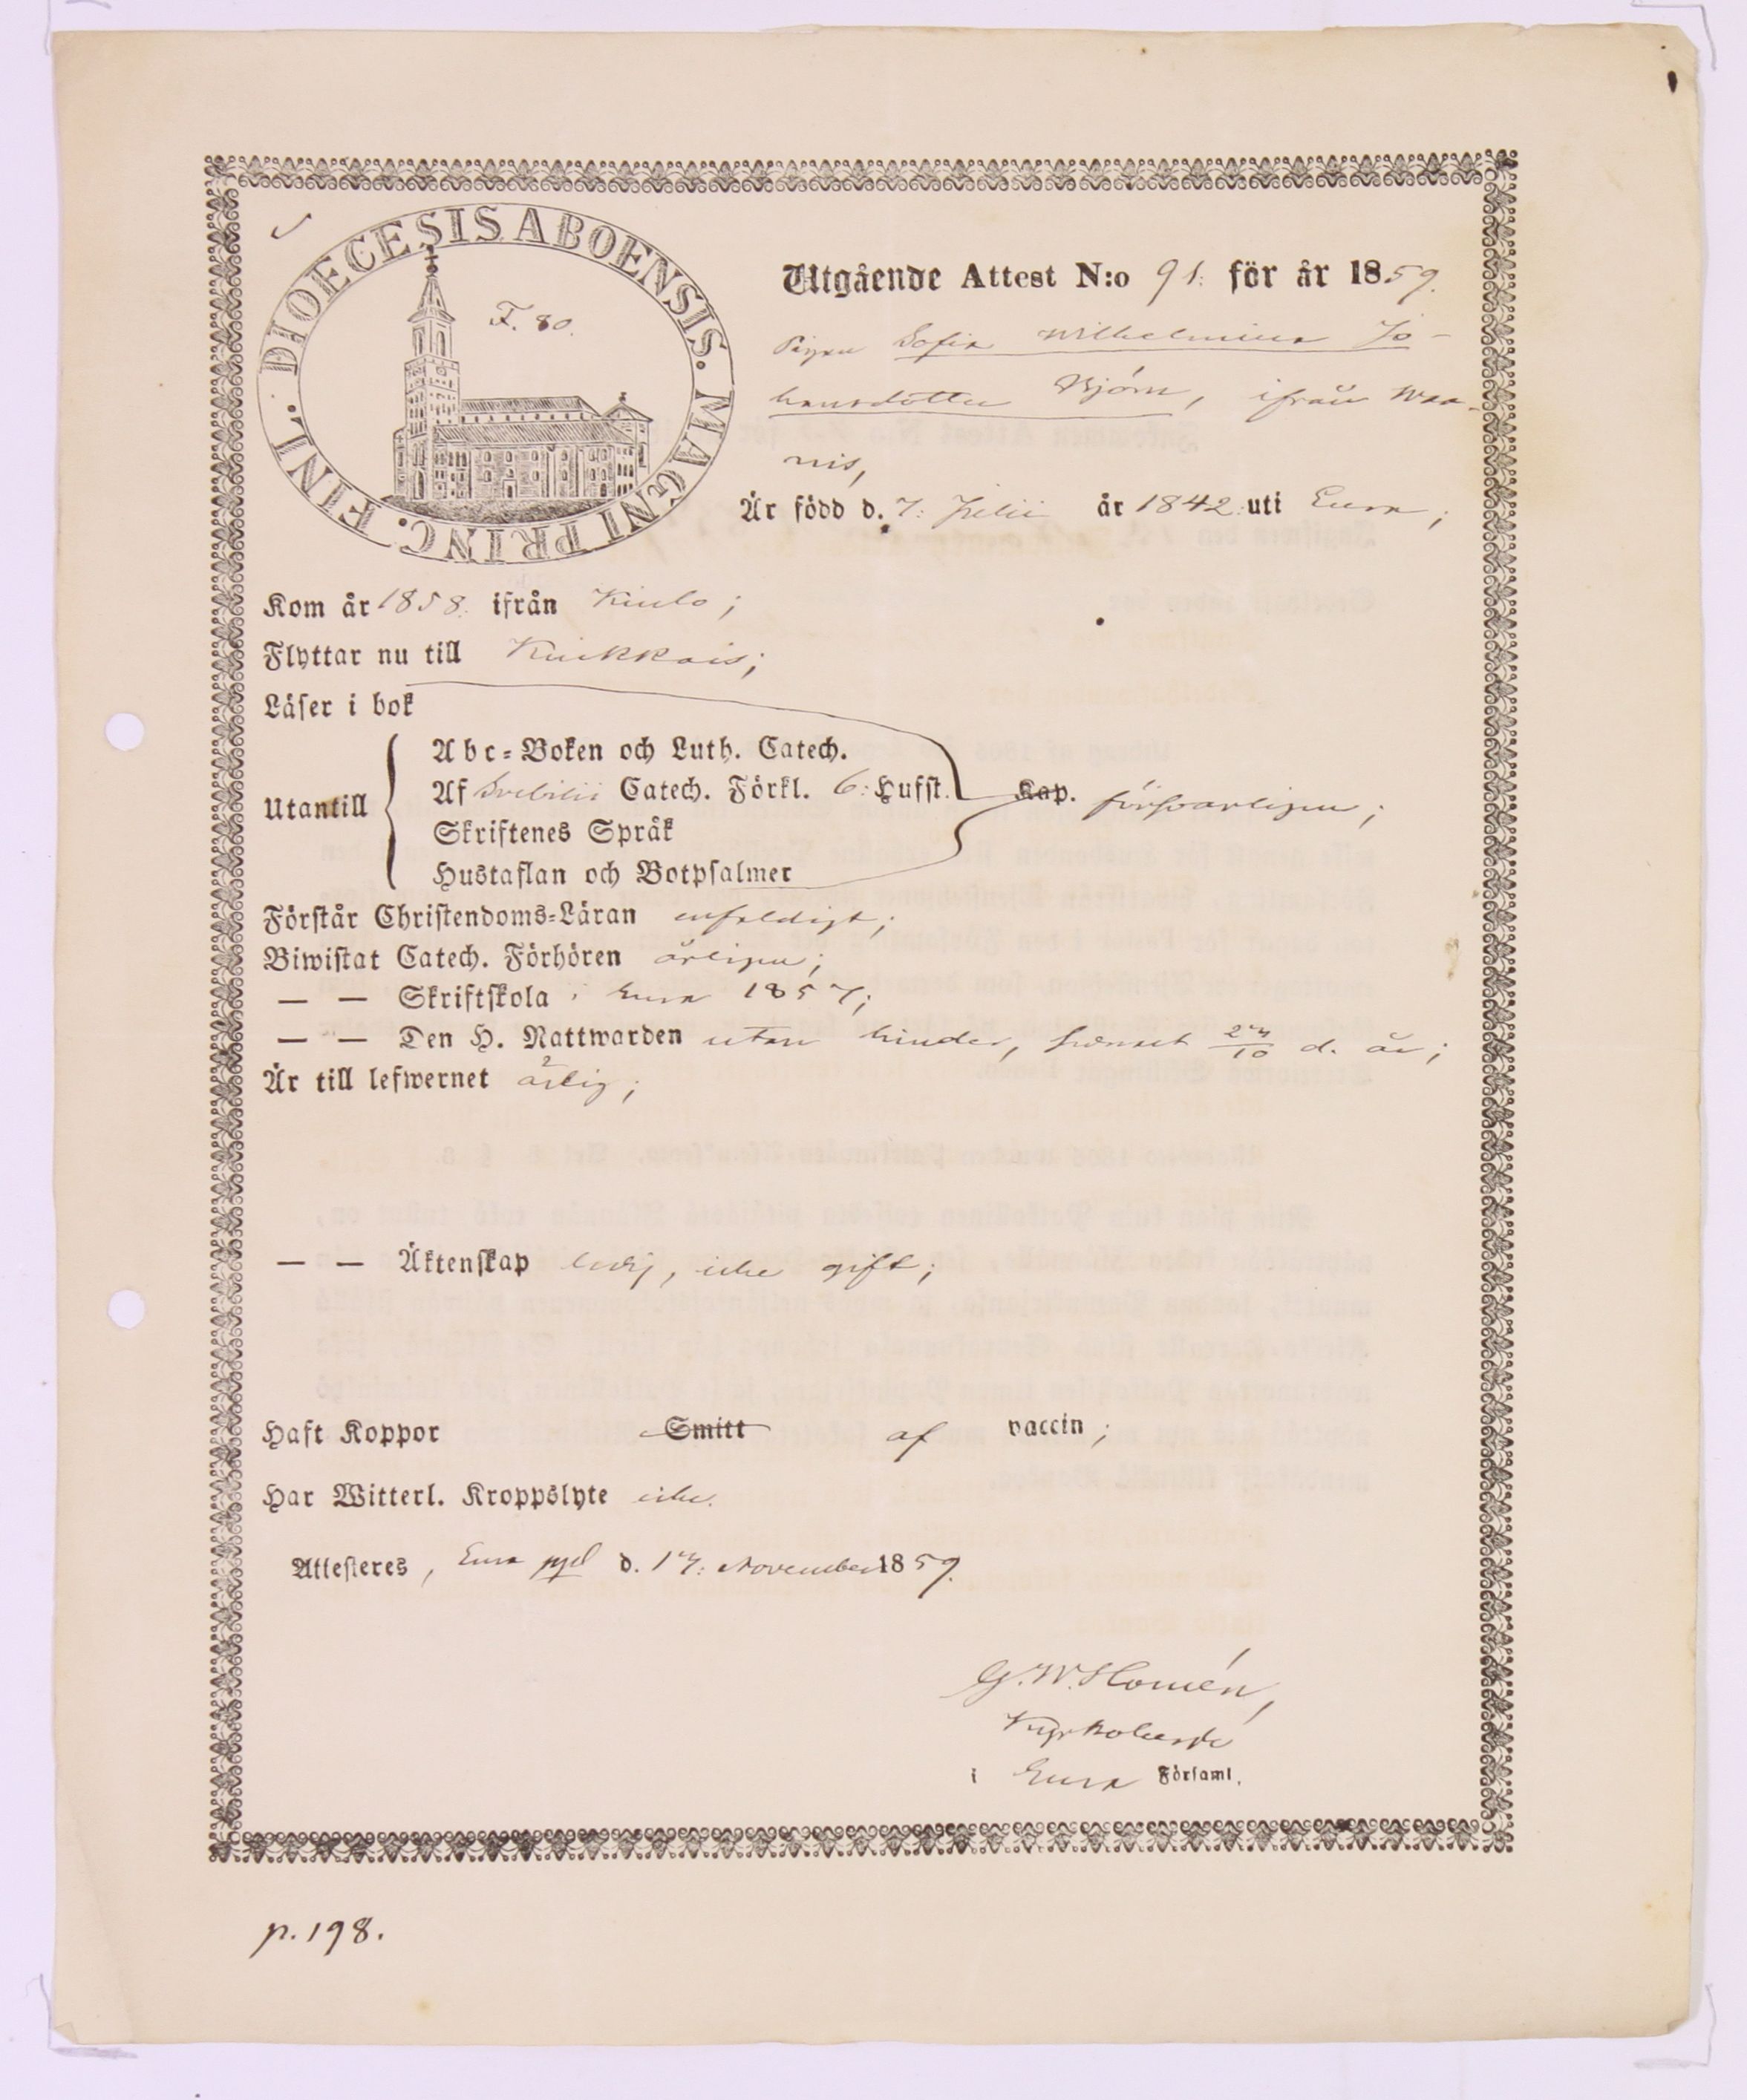 DIOECESIS ABOENSIS. MAGNI PRINC. FINL.
F. 80.
Utgående Attest N:o 91. för år 1859.
Pigan Sofia Wilhelmina Jo-
hansdotter Björn, ifrån Waa-
nis,
Är född d. 7: Julii år 1842 uti Eura;
Kom år 1858. ifrån Kiulo;
Flyttar nu till Kiukkais;
Läser i bok
Utantill
Abc=Boken och Luth. Catech.
Af Svebilii Catech. Förkl. 6: Hufst. Kap. försvarligen;
Skriftenes Språk
Hustaflan och Botpsalmer
Förstår Christendoms=Läran enfaldigt;
Biwistat Catech. Förhören årligen;
— — Skriftskola i Eura 1857;
— — Den H. Nattwarden utan hinder, senast 27/10 d. år;
Är till lefwernet ärlig;
— — Äktenskap ledig, icke gift;
Haft Koppor Smitt af vaccin;
Har Witterl. Kroppslyte icke.
Attesteres, Eura d. 17: November 1859.
G. W. Homén,
Kyrkoherde
i Eura Församl.
p. 198.